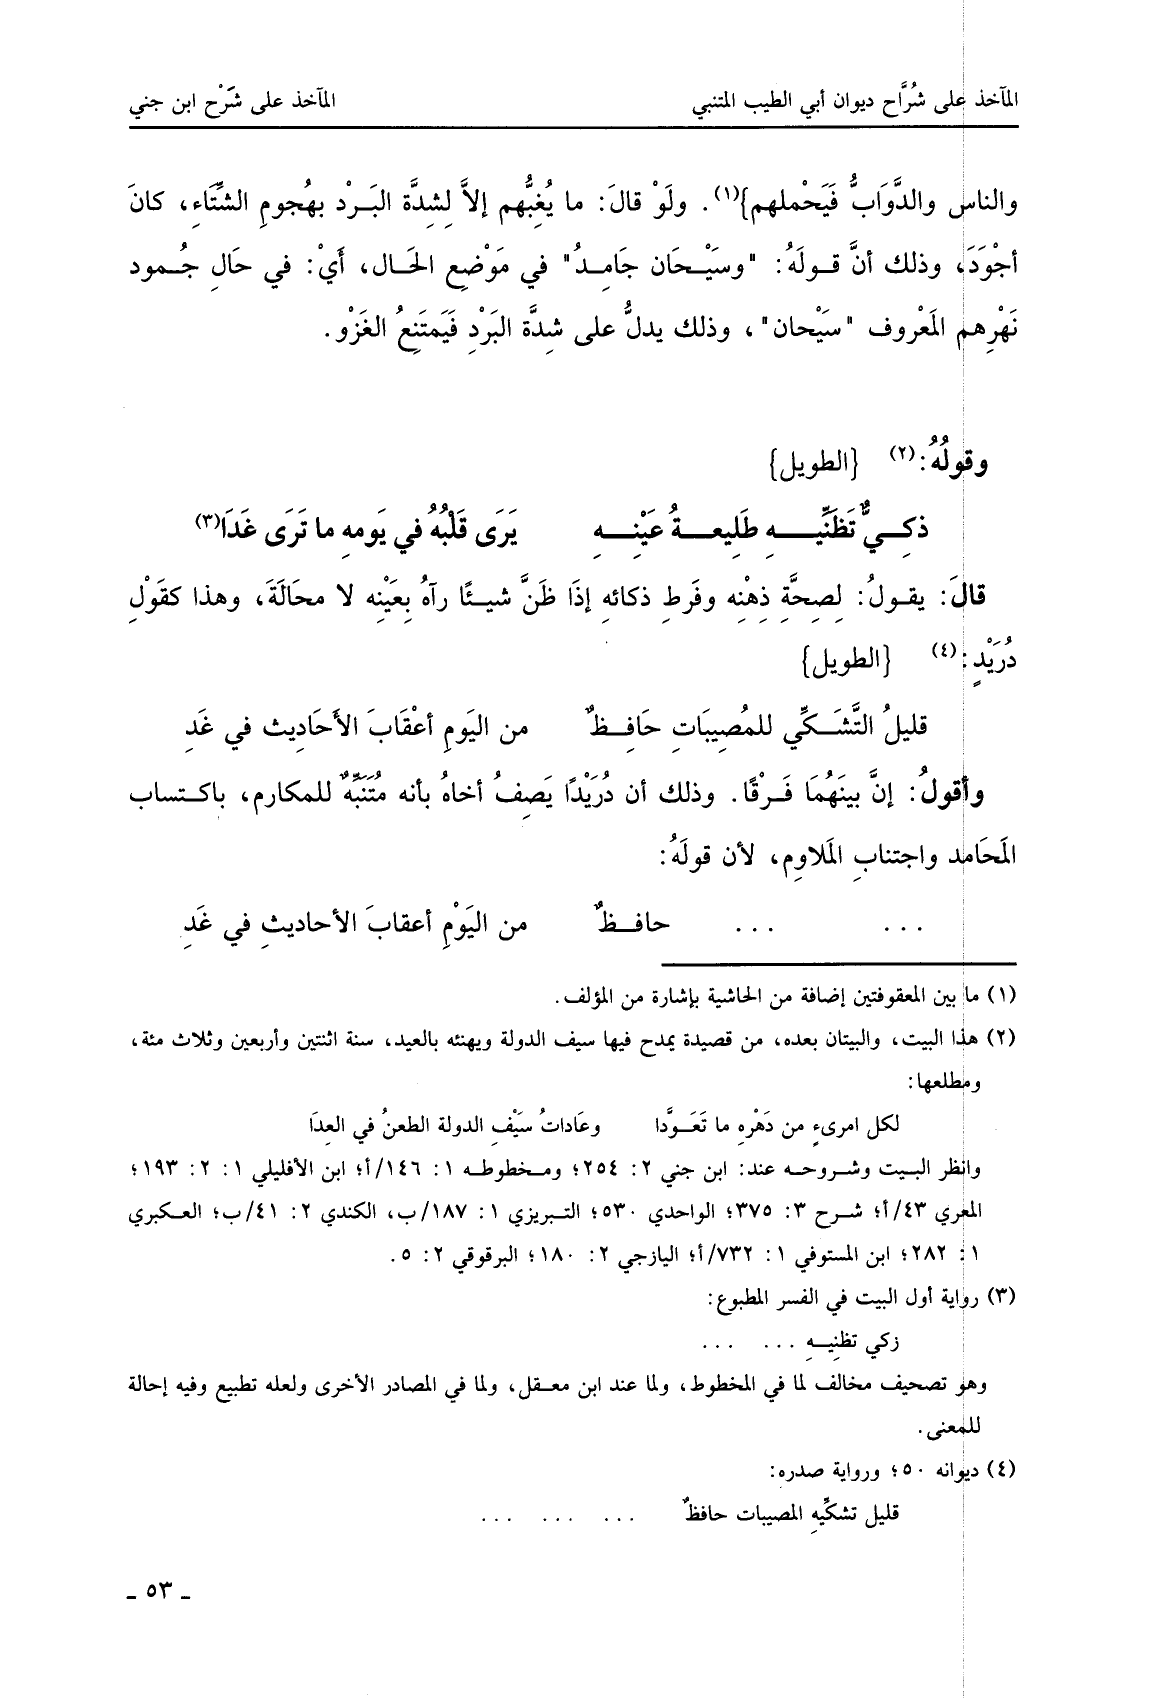 المآخذ على شُرَّاح ديوان أبي الطيب المتنبي المآخذ على شَرْح ابن جني
والناس والدَّوَابُّ فَيَحْملهم}(١). ولَوْ قالَ: ما يُغِبُّهم إلاَّ لِشِدَّة البَرْد بهُجومِ الشتَّاءِ، كانَ
أجْوَدَ، وذلك أنَّ قولَهُ: "وسَيْحان جَامِدُ" في مَوْضِعِ الحَال، أَيْ: في حَالِ جُمود
نَهْرِهم المَعْروف "سَيْحان"، وذلك يدلُّ على شِدَّة البَرْدِ فَيَمتَنِعُ الغَزْو.
وقولُهُ:(٢) {الطويل}
ذكِيٌّ تَظَنِّيهِ طَلِيعةُ عَيْنِهِ يَرَى قَلْبُهُ في يَومهِ ما تَرَى غَدَا(٣)
قالَ: يقولُ: لِصِحَّةِ ذِهْنِه وفَرطِ ذكائهِ إذَا ظَنَّ شيئًا رآهُ بِعَيْنِه لا محَالَةَ، وهذا كقَوْلِ
دُرَيْدٍ:(٤) {الطويل}
قليلُ التَّشَكِّي للمُصِيبَاتِ حَافِظٌ من اليَومِ أعْقَابَ الأَحَاديث في غَدِ
وأقولُ: إنَّ بينَهُمَا فَرْقًا. وذلك أن دُرَيْدًا يَصِفُ أخاهُ بأنه مُتَنَبِّهٌ للمكارم، باكتساب
المَحَامد واجتنابِ المَلاوِم، لأن قولَهُ:
... ... حافظٌ من اليَوْمِ أعقابَ الأحاديثِ في غَدِ
(١) ما بين المعقوفتين إضافة من الحاشية بإشارة من المؤلف.
(٢) هذا البيت، والبيتان بعده، من قصيدة يمدح فيها سيف الدولة ويهنئه بالعيد، سنة اثنتين وأربعين وثلاث مئة،
ومطلعها:
لكل امرىءٍ من دَهْرِه ما تَعَوَّدا وعَاداتُ سَيْفِ الدولة الطعنُ في العِدَا
وانظر البيت وشروحه عند: ابن جني ٢: ٢٥٤؛ ومخطوطه ١: ١٤٦/أ؛ ابن الأفليلي ١: ٢: ١٩٣؛
المعري ٤٣/أ؛ شرح ٣: ٣٧٥؛ الواحدي ٥٣٠؛ التبريزي ١: ١٨٧/ب، الكندي ٢: ٤١/ب؛ العكبري
١: ٢٨٢؛ ابن المستوفي ١: ٧٣٢/أ؛ اليازجي ٢: ١٨٠؛ البرقوقي ٢: ٥.
(٣) رواية أول البيت في الفسر المطبوع:
زكي تظنِيهِ ... ...
وهو تصحيف مخالف لما في المخطوط، ولما عند ابن معقل، ولما في المصادر الأخرى ولعله تطبيع وفيه إحالة
للمعنى.
(٤) ديوانه ٥٠؛ ورواية صدره:
قليل تشكِّيهِ المصيبات حافظٌ ... ... ...
ـ ٥٣ ـ